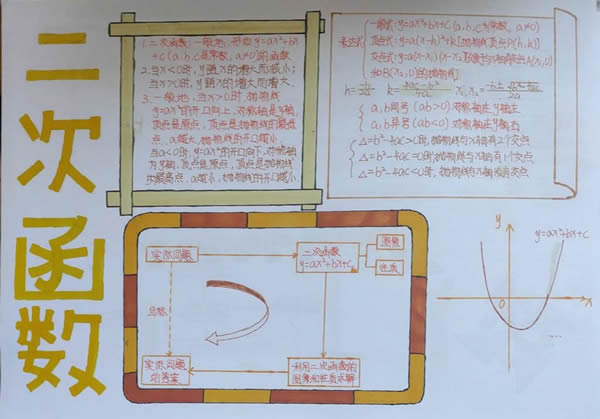 二次函数
1. 二次函数: 一般地, 形如 y=ax²+bx
+c (a,b,c是常数, a≠0)的函数
2. 当x<0时, y随x的增大而减小;
当x>0时, y随x的增大而增大.
3. 一般地, 当a>0时, 抛物线
y=ax²的开口向上, 对称轴是y轴,
顶点是原点, 顶点是抛物线的最低
点, a越大, 抛物线的开口越小
当a<0时, y=ax²的开口向下, 对称轴
为y轴, 顶点是原点, 顶点是抛物线
的最高点, a越小, 抛物线的开口越小
表达式
一般式: y=ax²+bx+c, (a,b,c为常数, a≠0)
顶点式: y=a(x-h)²+k [抛物线顶点P(h,k)]
交点式: y=a(x-x₁)(x-x₂)
A(x₁,0)
和B(x₂,0)的抛物线]
a,b同号(ab>0)对称轴在y轴左
a,b异号(ab<0)对称轴在y轴右
△=b²-4ac>0时, 抛物线与x轴有2个交点
△=b²-4ac=0时, 抛物线与x轴有1个交点
△=b²-4ac<0时, 抛物线与x轴没有交点
实际问题
二次函数
y=ax²+bx+c
图象
性质
目标
实际问题
的答案
利用二次函数的
图象和性质求解
y
y=ax²+bx+c
0
x